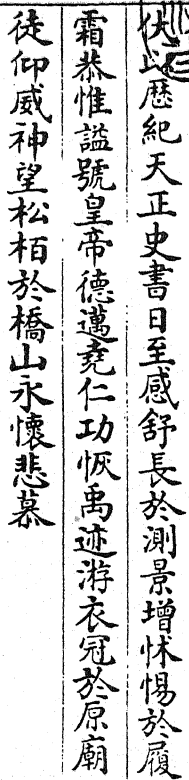 伏以歴紀天正史書日至感舒長於測景增怵惕於履
霜恭惟謚號皇帝德邁堯仁功恢禹迹游衣冠於原廟
徒仰威神望松栢於橋山永懷悲慕